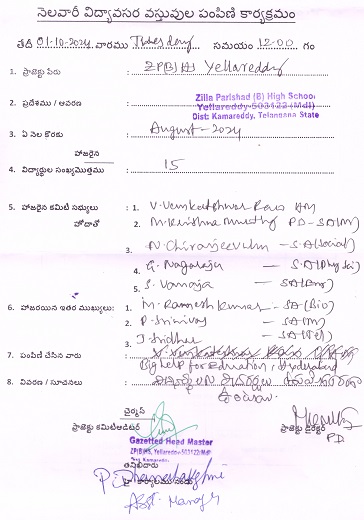 నెలవారీ విద్యావసర వస్తువుల పంపిణి కార్యక్రమం
తేదీ 01-10-2024 వారము Tuesday సమయం 12-00 గం
1. ప్రాజెక్టు పేరు : ZPBHS Yellareddy
2. ప్రదేశము / ఆవరణ : Zilla Parishad (B) High School
Yellareddy-503122 (Mdl)
Dist: Kamareddy, Telangana State
3. ఏ నెల కొరకు : August-2024
హాజరైన
4. విద్యార్థుల సంఖ్యమొత్తము : 15
5. హాజరైన కమిటి సభ్యులు : 1. V. Venkateshwar Rao HM
హోదాతో 2. M. Krishna Murthy PD-SA(M)
3. N. Chiranjeevulu - S.A(Social)
4. G. Nagaraju - S.A(Phy Sci)
5. S. Vanaja - SA(Eng)
6. హాజరయిన ఇతర ముఖ్యులు: 1. M. Ramesh Kumar - SA(Bio)
2. P. Srinivas - SA(M)
3. J. Sridhar - SA(Tel)
7. పంపిణి చేసిన వారు :
Big help for Education, Hyderabad
8. వివరణ / సూచనలు :
చైర్మన్
ప్రాజెక్టు కమిటిఆడిటర్ ప్రాజెక్టు డైరెక్టర్
P.D.
Gazetted Head Master
ZP(B)HS, Yellareddy-503122(Mdl)
Dist. Kamareddy
తనిఖీదారు
P. Dhanalakshmi
Asst. Manager